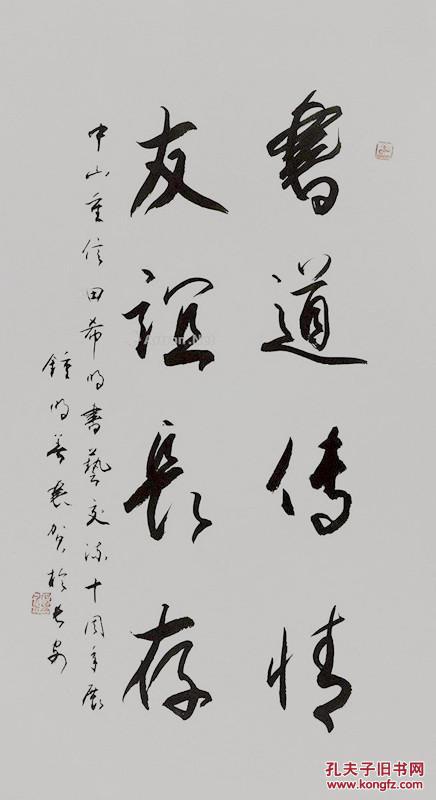 書道傳情
友誼長存
中山重信田希明書藝交流十周年展
鍾明善恭賀於長安
孔夫子旧书网
www.kongfz.com